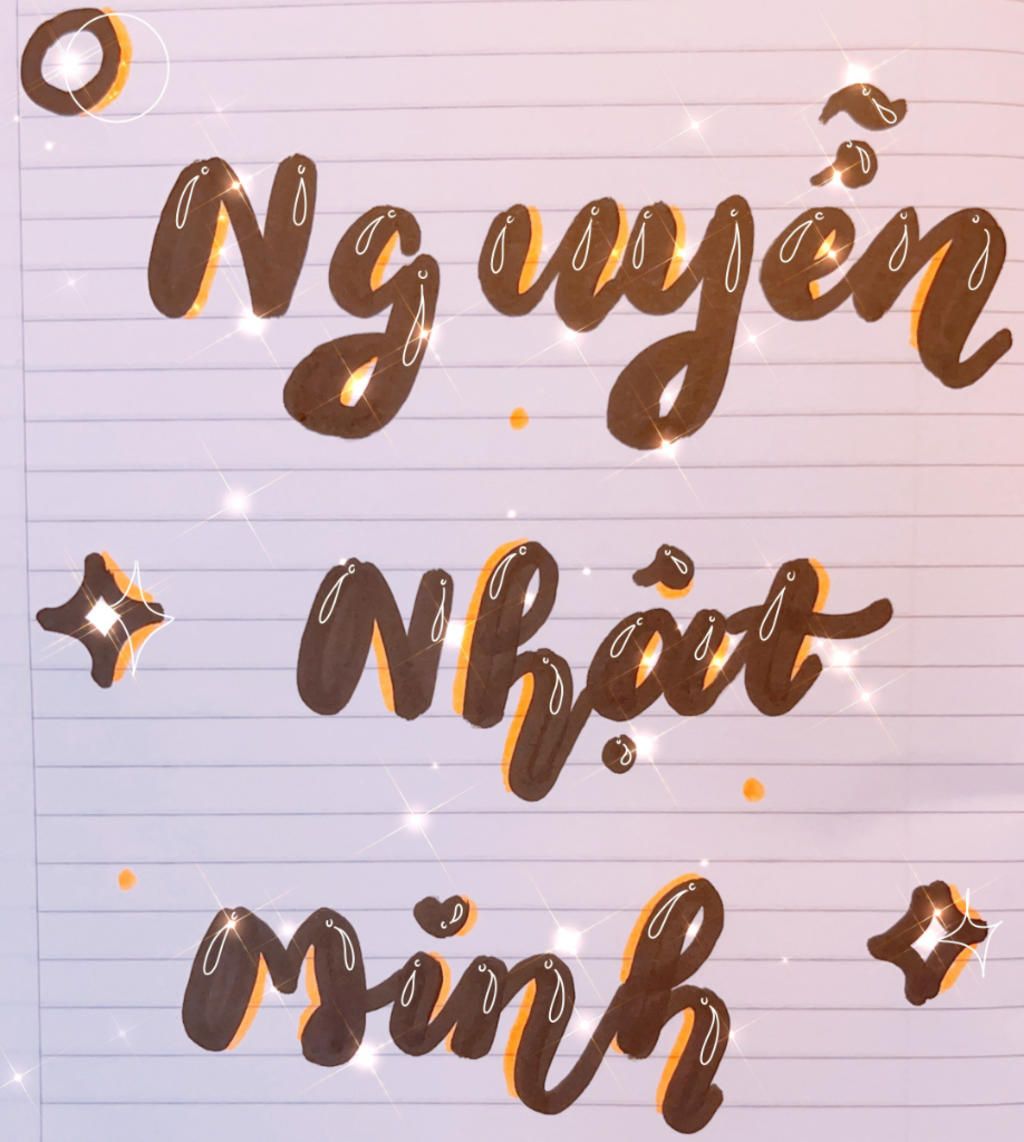 Nguyễn
Nhật
Minh